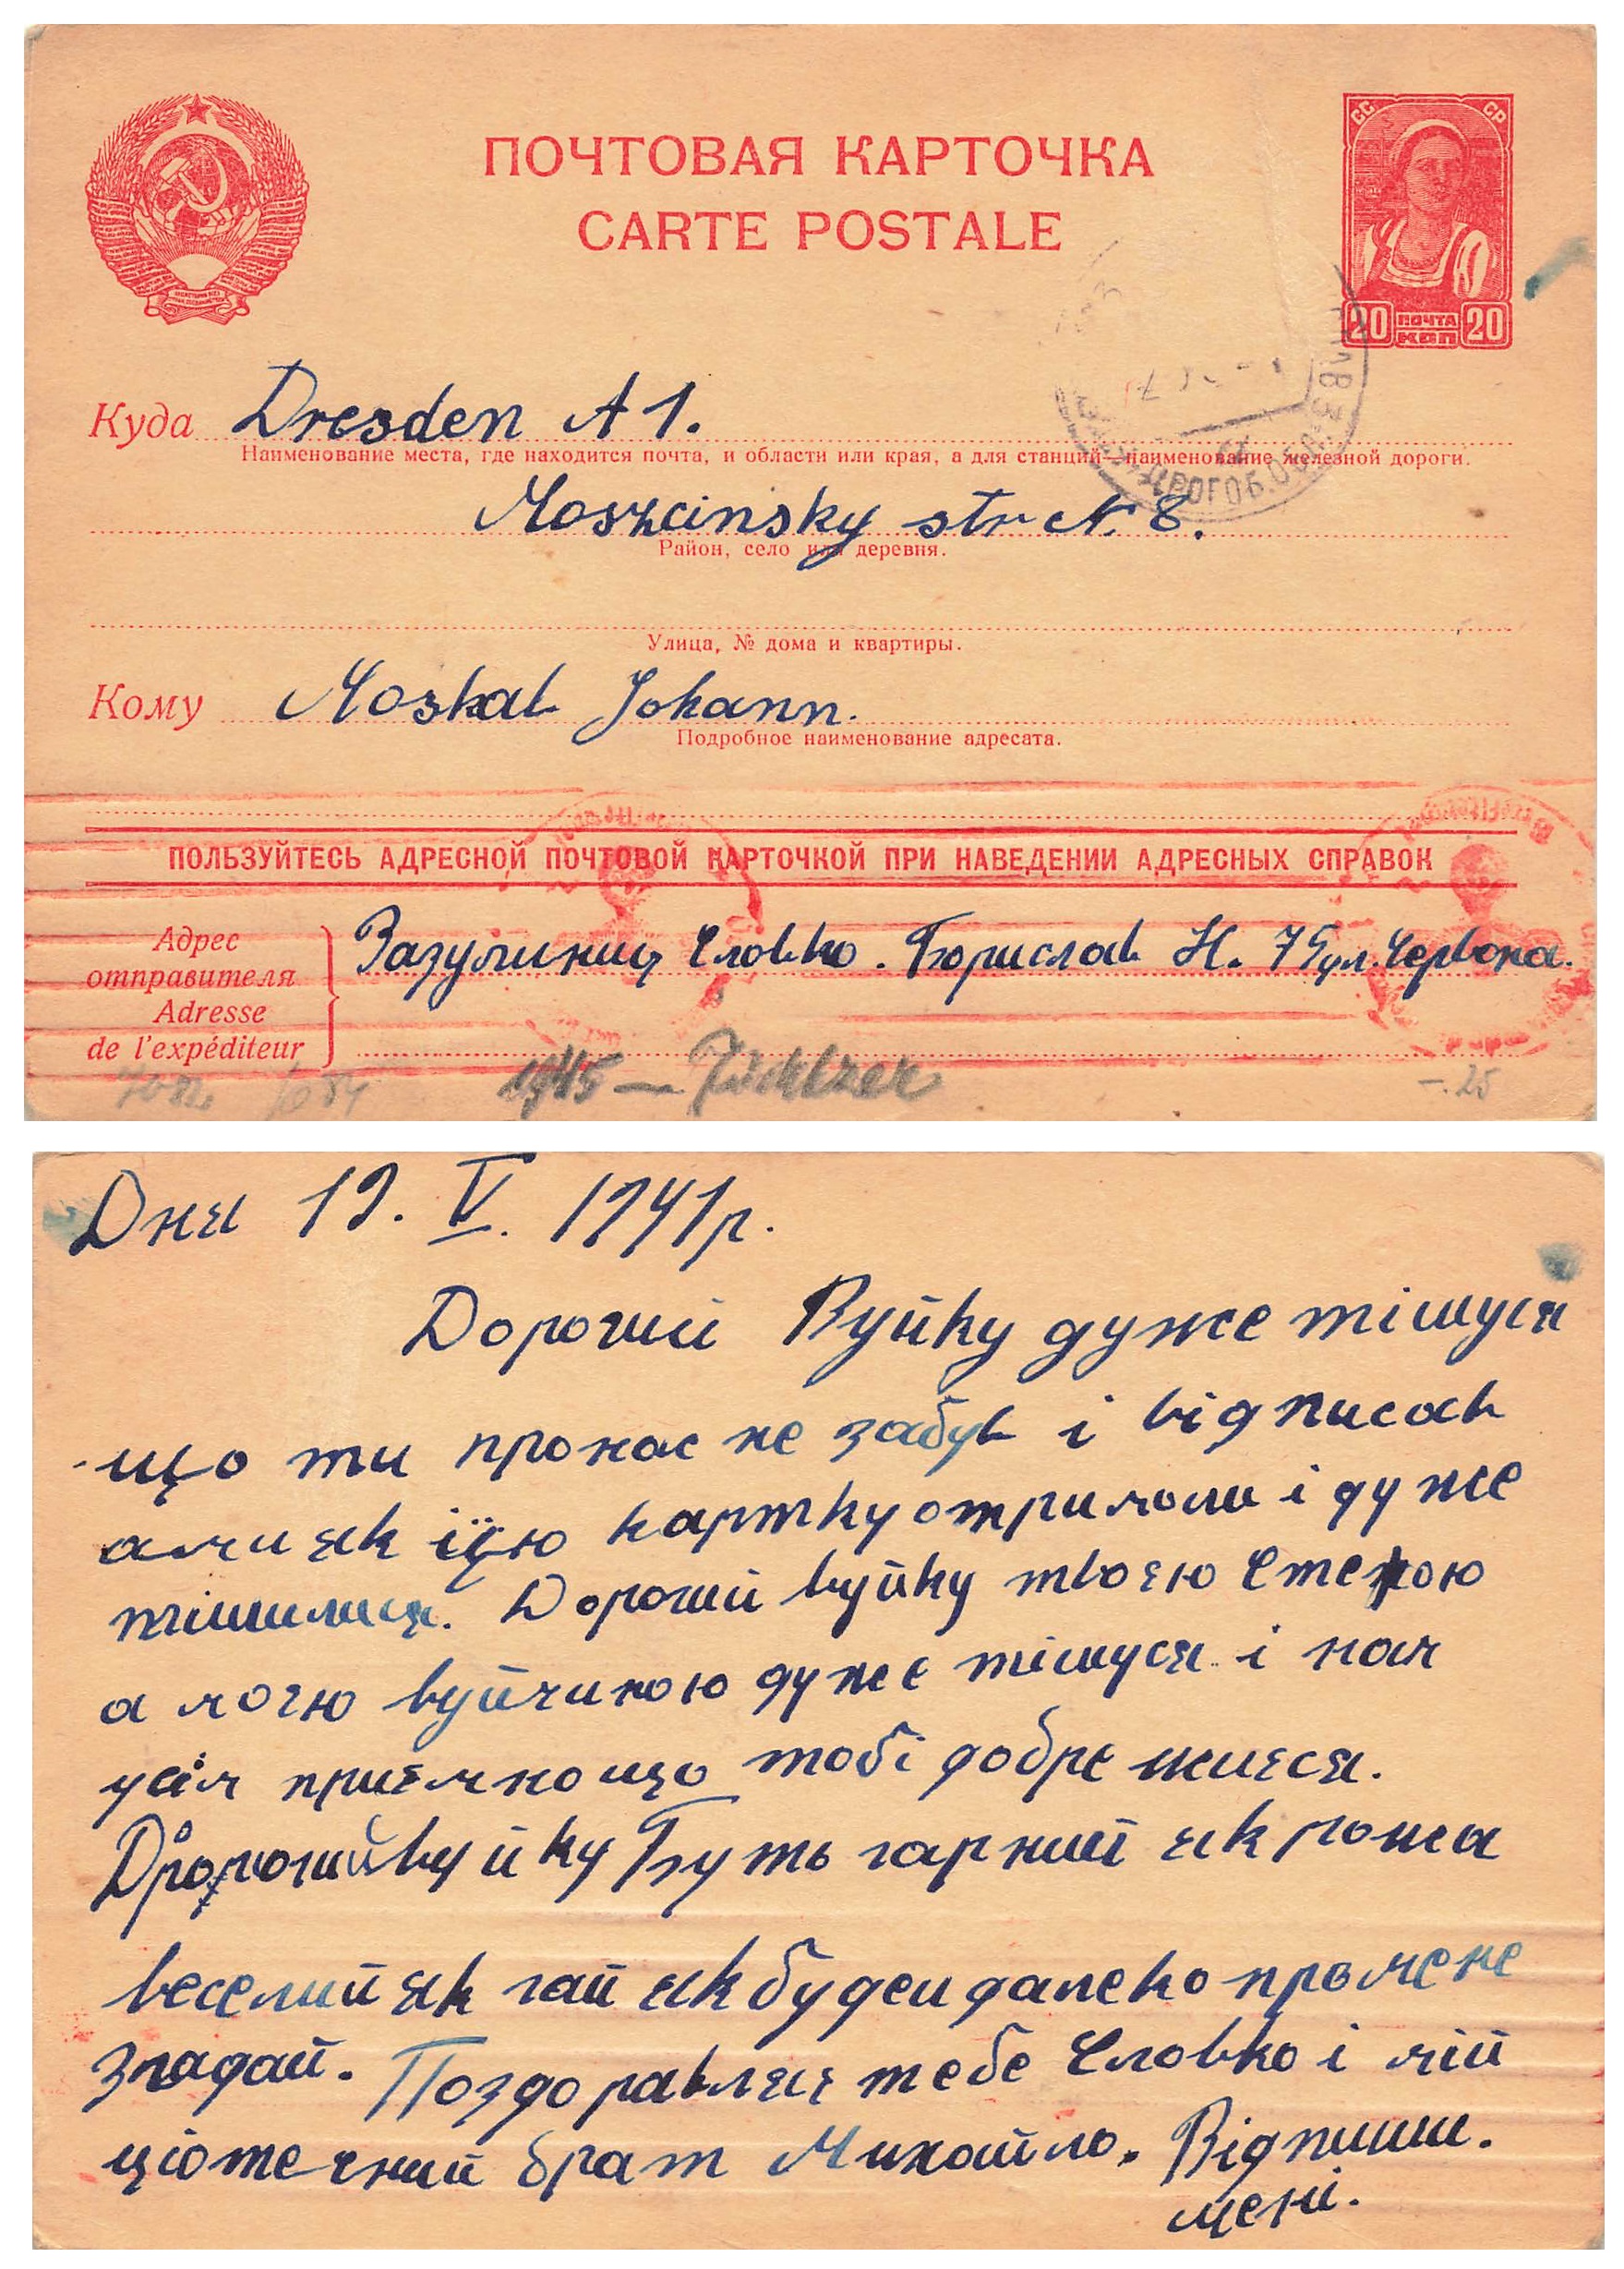 ПОЧТОВАЯ КАРТОЧКА
CARTE POSTALE
СС СР
20 ПОЧТА КОП 20
Куда Dresden A 1.
Наименование места, где находится почта, и области или края, а для станций—наименование железной дороги.
Moszcinsky str N. 8.
Район, село или деревня.
Улица, № дома и квартиры.
Кому Moskal Johann.
Подробное наименование адресата.
ПОЛЬЗУЙТЕСЬ АДРЕСНОЙ ПОЧТОВОЙ КАРТОЧКОЙ ПРИ НАВЕДЕНИИ АДРЕСНЫХ СПРАВОК
Адрес
отправителя
Adresse
de l'expéditeur
Славко. Борислав Н. 75 ул. Червона.
-.25
Дня 19. V. 1941 р.
Дорогий Вуйку дуже тішуся
що ти про нас не забув і відписав
ами як їцю картку отримали і дуже
тішилися. Дорогий вуйку твоєю Стефою
а моєю вуйчиною дуже тішуся і нам
усім приємно що тобі добре жиєся.
Дорогий вуйку Буть гарний як рожа
веселий як гай як будеш далеко про мене
згадай. Поздоравляє тебе Славко і мій
ціотечний брат Михайло. Відпиши.
мені.